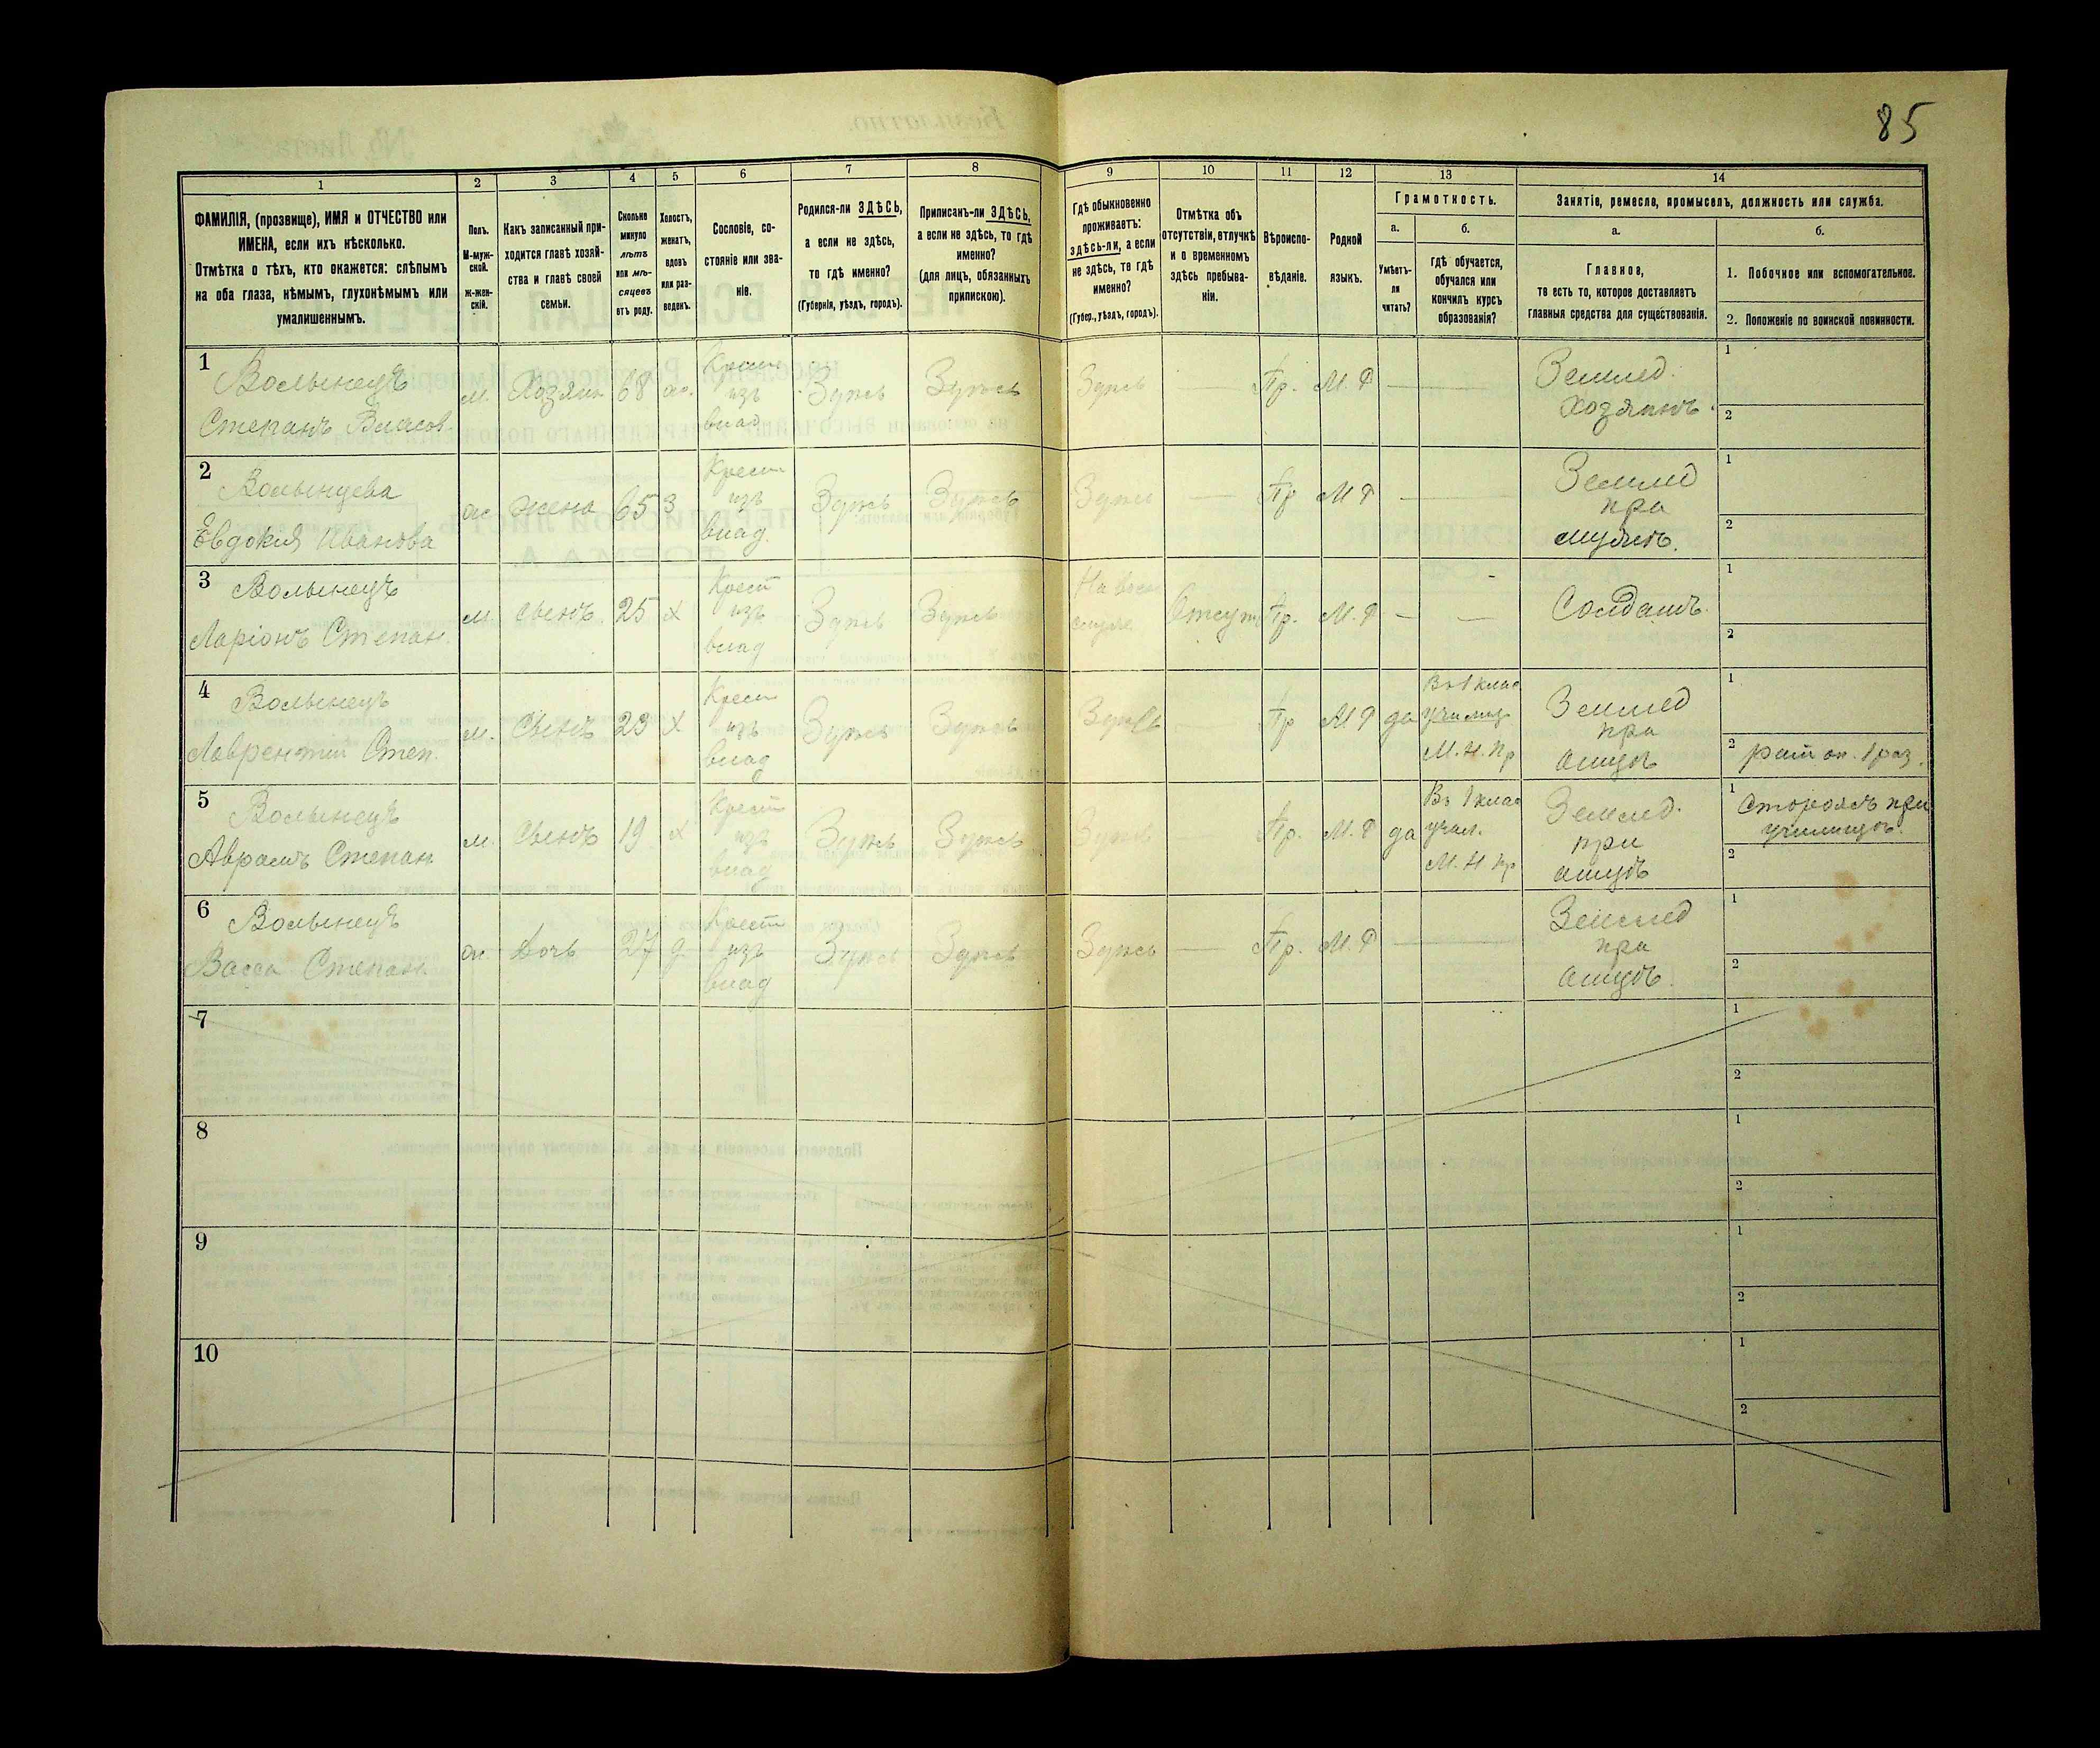 85
1 2 3 4 5 6 7 8 9 10 11 12 13 14
ФАМИЛІЯ, (прозвище), ИМЯ и ОТЧЕСТВО или
ИМЕНА, если ихъ нѣсколько.
Отмѣтка о тѣхъ, кто окажется: слѣпымъ
на оба глаза, нѣмымъ, глухонѣмымъ или
умалишеннымъ.
Полъ.
М-муж-
ской.
ж-жен-
скій.
Какъ записанный при-
ходится главѣ хозяй-
ства и главѣ своей
семьи.
Сколько
минуло
лѣтъ
или мѣ-
сяцевъ
отъ роду.
Холостъ,
женатъ,
вдовъ
или раз-
веденъ.
Сословіе, со-
стояніе или зва-
ніе.
Родился-ли ЗДѢСЬ,
а если не здѣсь,
то гдѣ именно?
(Губернія, уѣздъ, городъ).
Приписанъ-ли ЗДѢСЬ,
а если не здѣсь, то гдѣ
именно?
(для лицъ, обязанныхъ
припискою).
Гдѣ обыкновенно
проживаетъ:
здѣсь-ли, а если
не здѣсь, то гдѣ
именно?
(Губер., уѣздъ, городъ).
Отмѣтка объ
отсутствіи, отлучкѣ
и о временномъ
здѣсь пребыва-
ніи.
Вѣроиспо-
вѣданіе.
Родной
языкъ.
Грамотность.
а.
Умѣетъ-
ли
читать?
б.
гдѣ обучается,
обучался или
кончилъ курсъ
образованія?
Занятіе, ремесло, промыселъ, должность или служба.
а.
Главное,
то есть то, которое доставляетъ
главныя средства для существованія.
б.
1. Побочное или вспомогательное.
2. Положеніе по воинской повинности.
1
Волынецъ
Степанъ Власов.
м. Хозяин 68
Крест
изъ
влад
Здѣсь Здѣсь Здѣсь — Пр. М. Р — —
Землед.
Хозяинъ.
1
2
2
Волынцева
Евдокия Иванова
ж жена 65 з
Крест
изъ
влад.
Здѣсь Здѣсь Здѣсь — Пр М Р — —
Землед
при
мужѣ.
1
2
3
Волынецъ
Ларіонъ Степан.
м. сынъ. 25 х
Крест
изъ
влад
Здѣсь Здѣсь
Отсут Пр. М. Р — —
Солдатъ.
1
2
4
Волынецъ
Лаврентий Степ.
м. Сынъ 23 х
Крест
изъ
влад
Здѣсь Здѣсь Здѣсь — Пр М Р да
Въ 1 клас.
училищ.
М. Н. Пр
Землед
при
отцѣ
1
2 рат. оп. 1 раз.
5
Волынецъ
Аврамъ Степан
м. Сынъ 19 х
Крест
изъ
влад
Здѣсь Здѣсь Здѣсь — Пр. М. Р да
Въ 1 клас
учил.
М. Н. Пр
Землед.
при
отцѣ
1 Сторожъ при
училищѣ.
2
6
Волынецъ
Васса Степан.
ж. Дочь 27 д
Крест
изъ
влад
Здѣсь Здѣсь Здѣсь — Пр. М. Р — —
Землед
при
отцѣ.
1
2
7
1
2
8
1
2
9
1
2
10
1
2